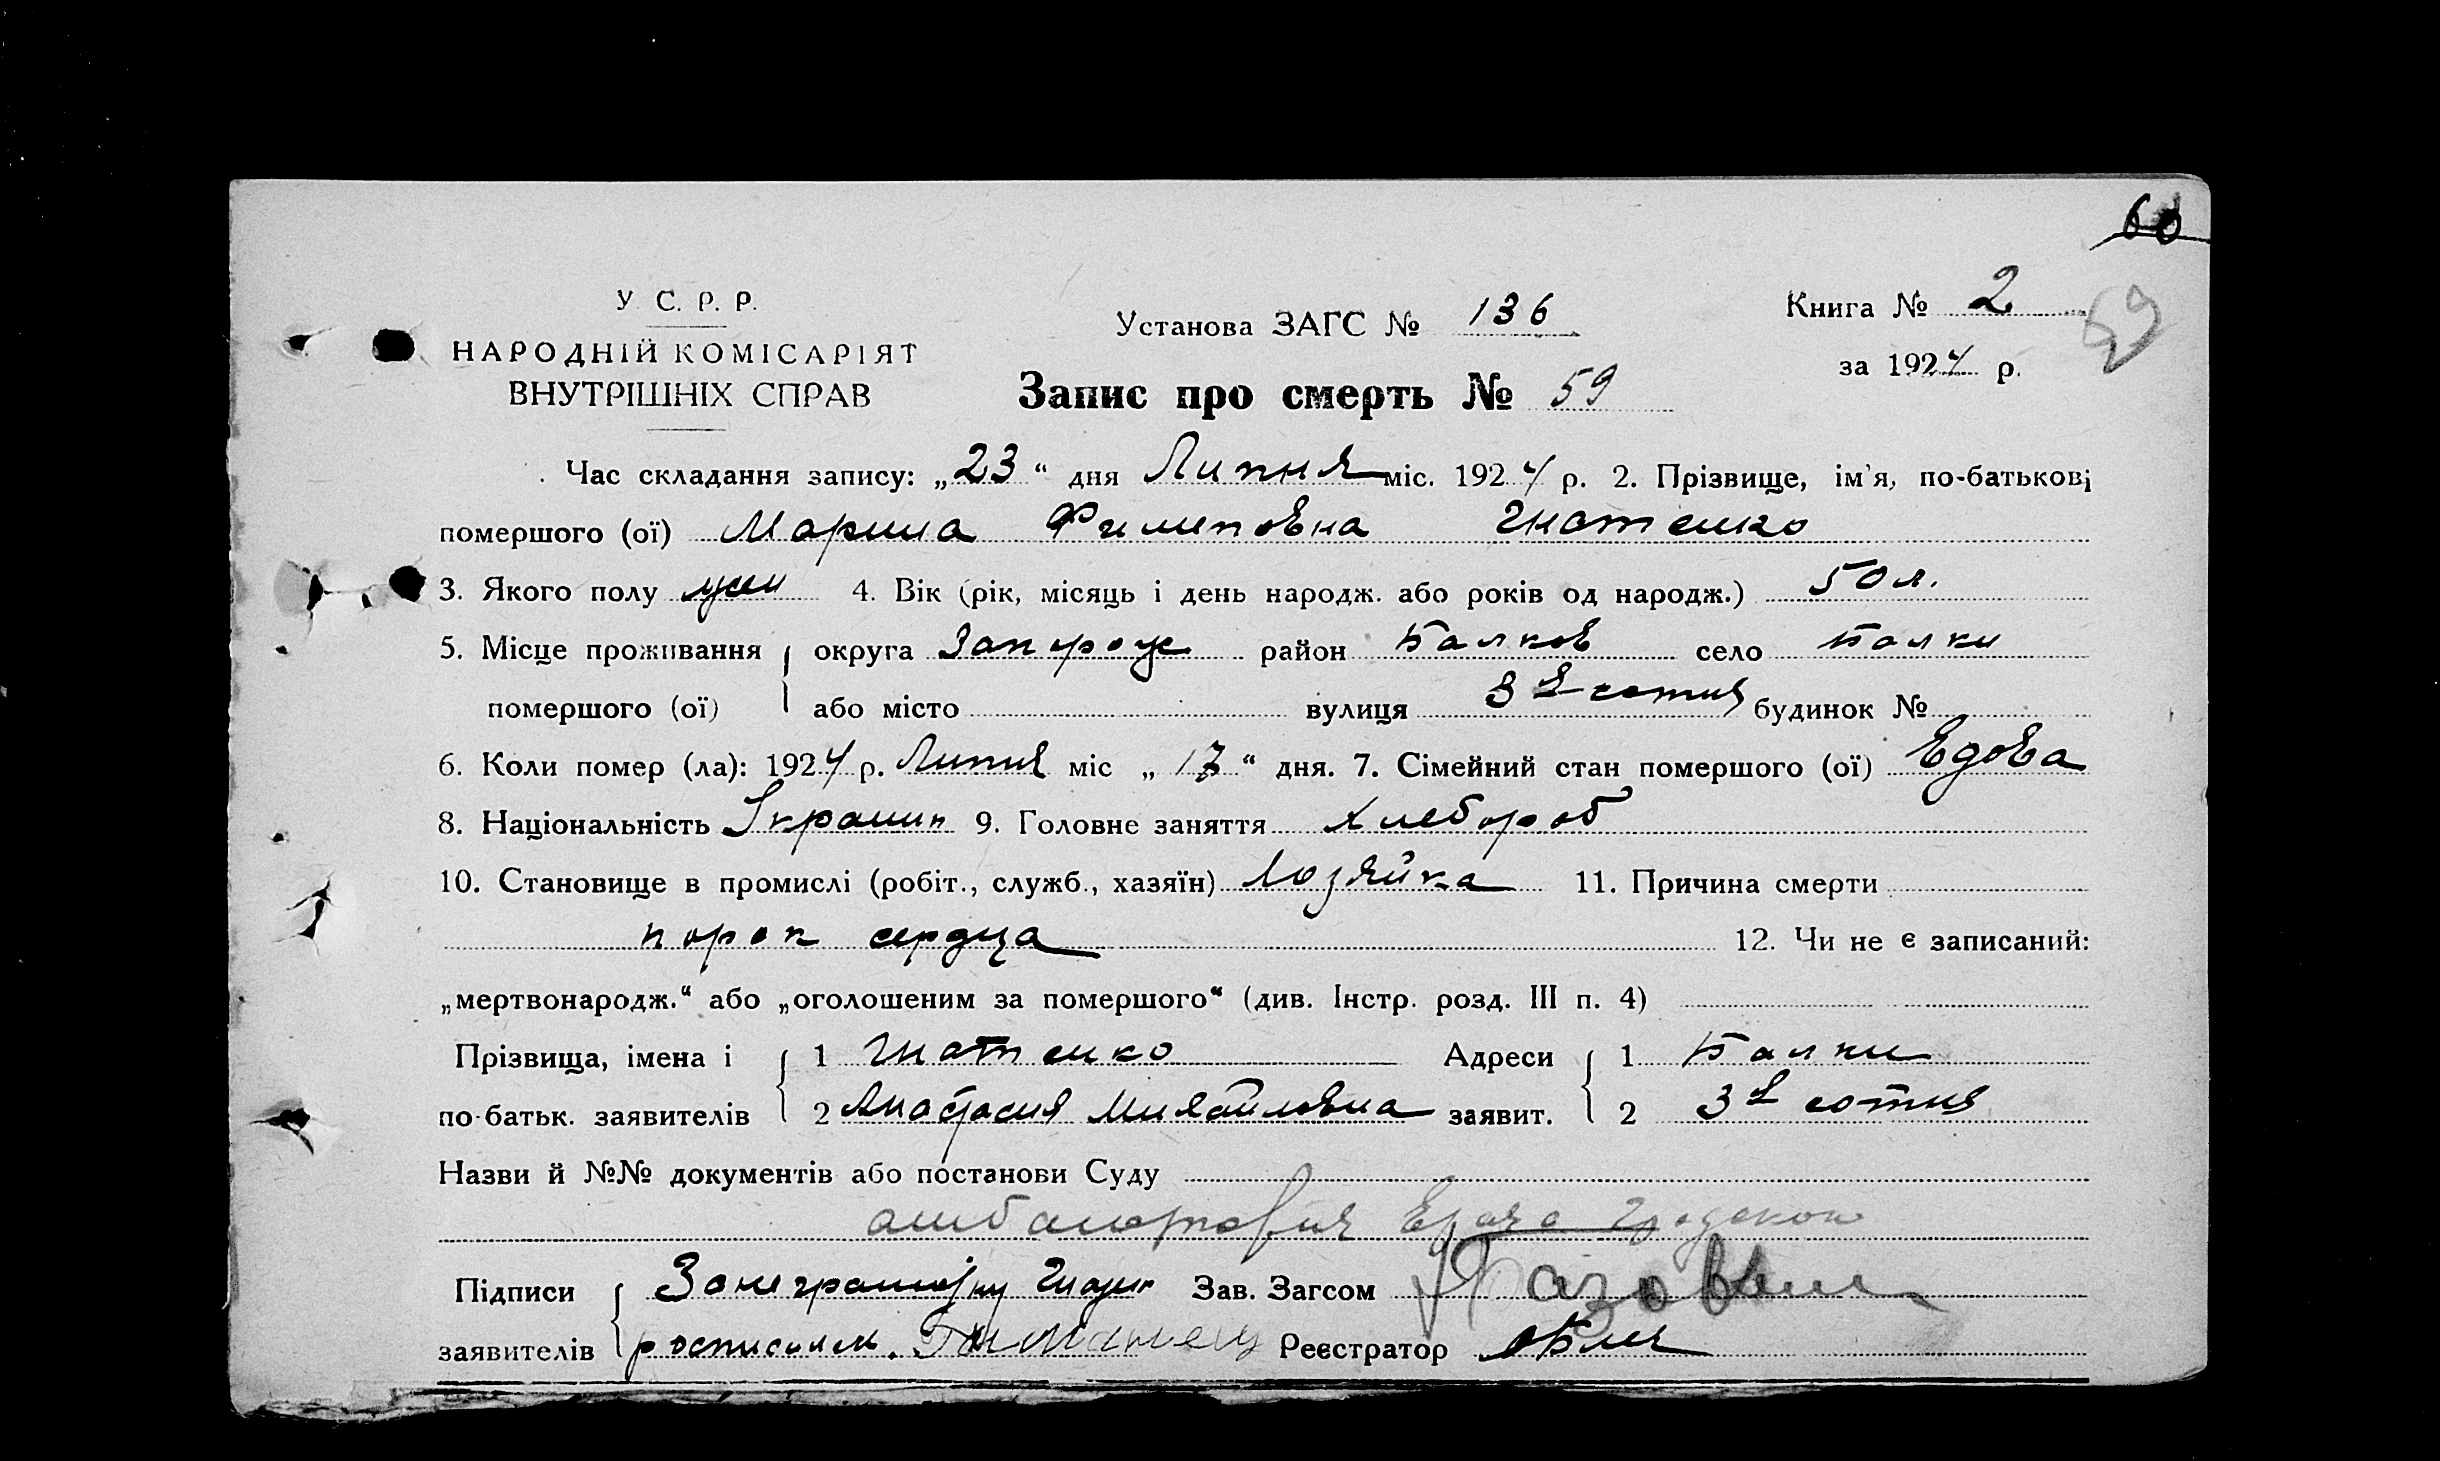 60
59
У. С. Р. Р.
НАРОДНІЙ КОМІСАРІЯТ
ВНУТРІШНІХ СПРАВ
Установа ЗАГС № 136
Книга № 2
за 1924 р.
Запис про смерть № 59
Час складання запису: „23“ дня Липня міс. 1924 р. 2. Прізвище, ім'я, по-батькові
помершого (ої) Марина Филиповна Гнатенко
3. Якого полу 4. Вік (рік, місяць і день народж. або років од народж.) 50 л.
5. Місце проживання округа Запорож район Балков село Балки
помершого (ої) або місто вулиця 3я сотня будинок №
6. Коли помер (ла): 1924 р. Липня міс „17“ дня. 7. Сімейний стан помершого (ої) Вдова
8. Національність Україин 9. Головне заняття Хлебороб
10. Становище в промислі (робіт., служб., хазяїн) Хозяйка 11. Причина смерти
порок сердца 12. Чи не є записаний:
„мертвонародж.“ або „оголошеним за помершого“ (див. Інстр. розд. III п. 4)
Прізвища, імена і 1 Гнатенко Адреси 1 Балки
по-батьк. заявителів 2 Анастасия Михайловна заявит. 2 3я сотня
Назви й №№ документів або постанови Суду
Врача
Підписи Зав. Загсом
заявителів Реєстратор